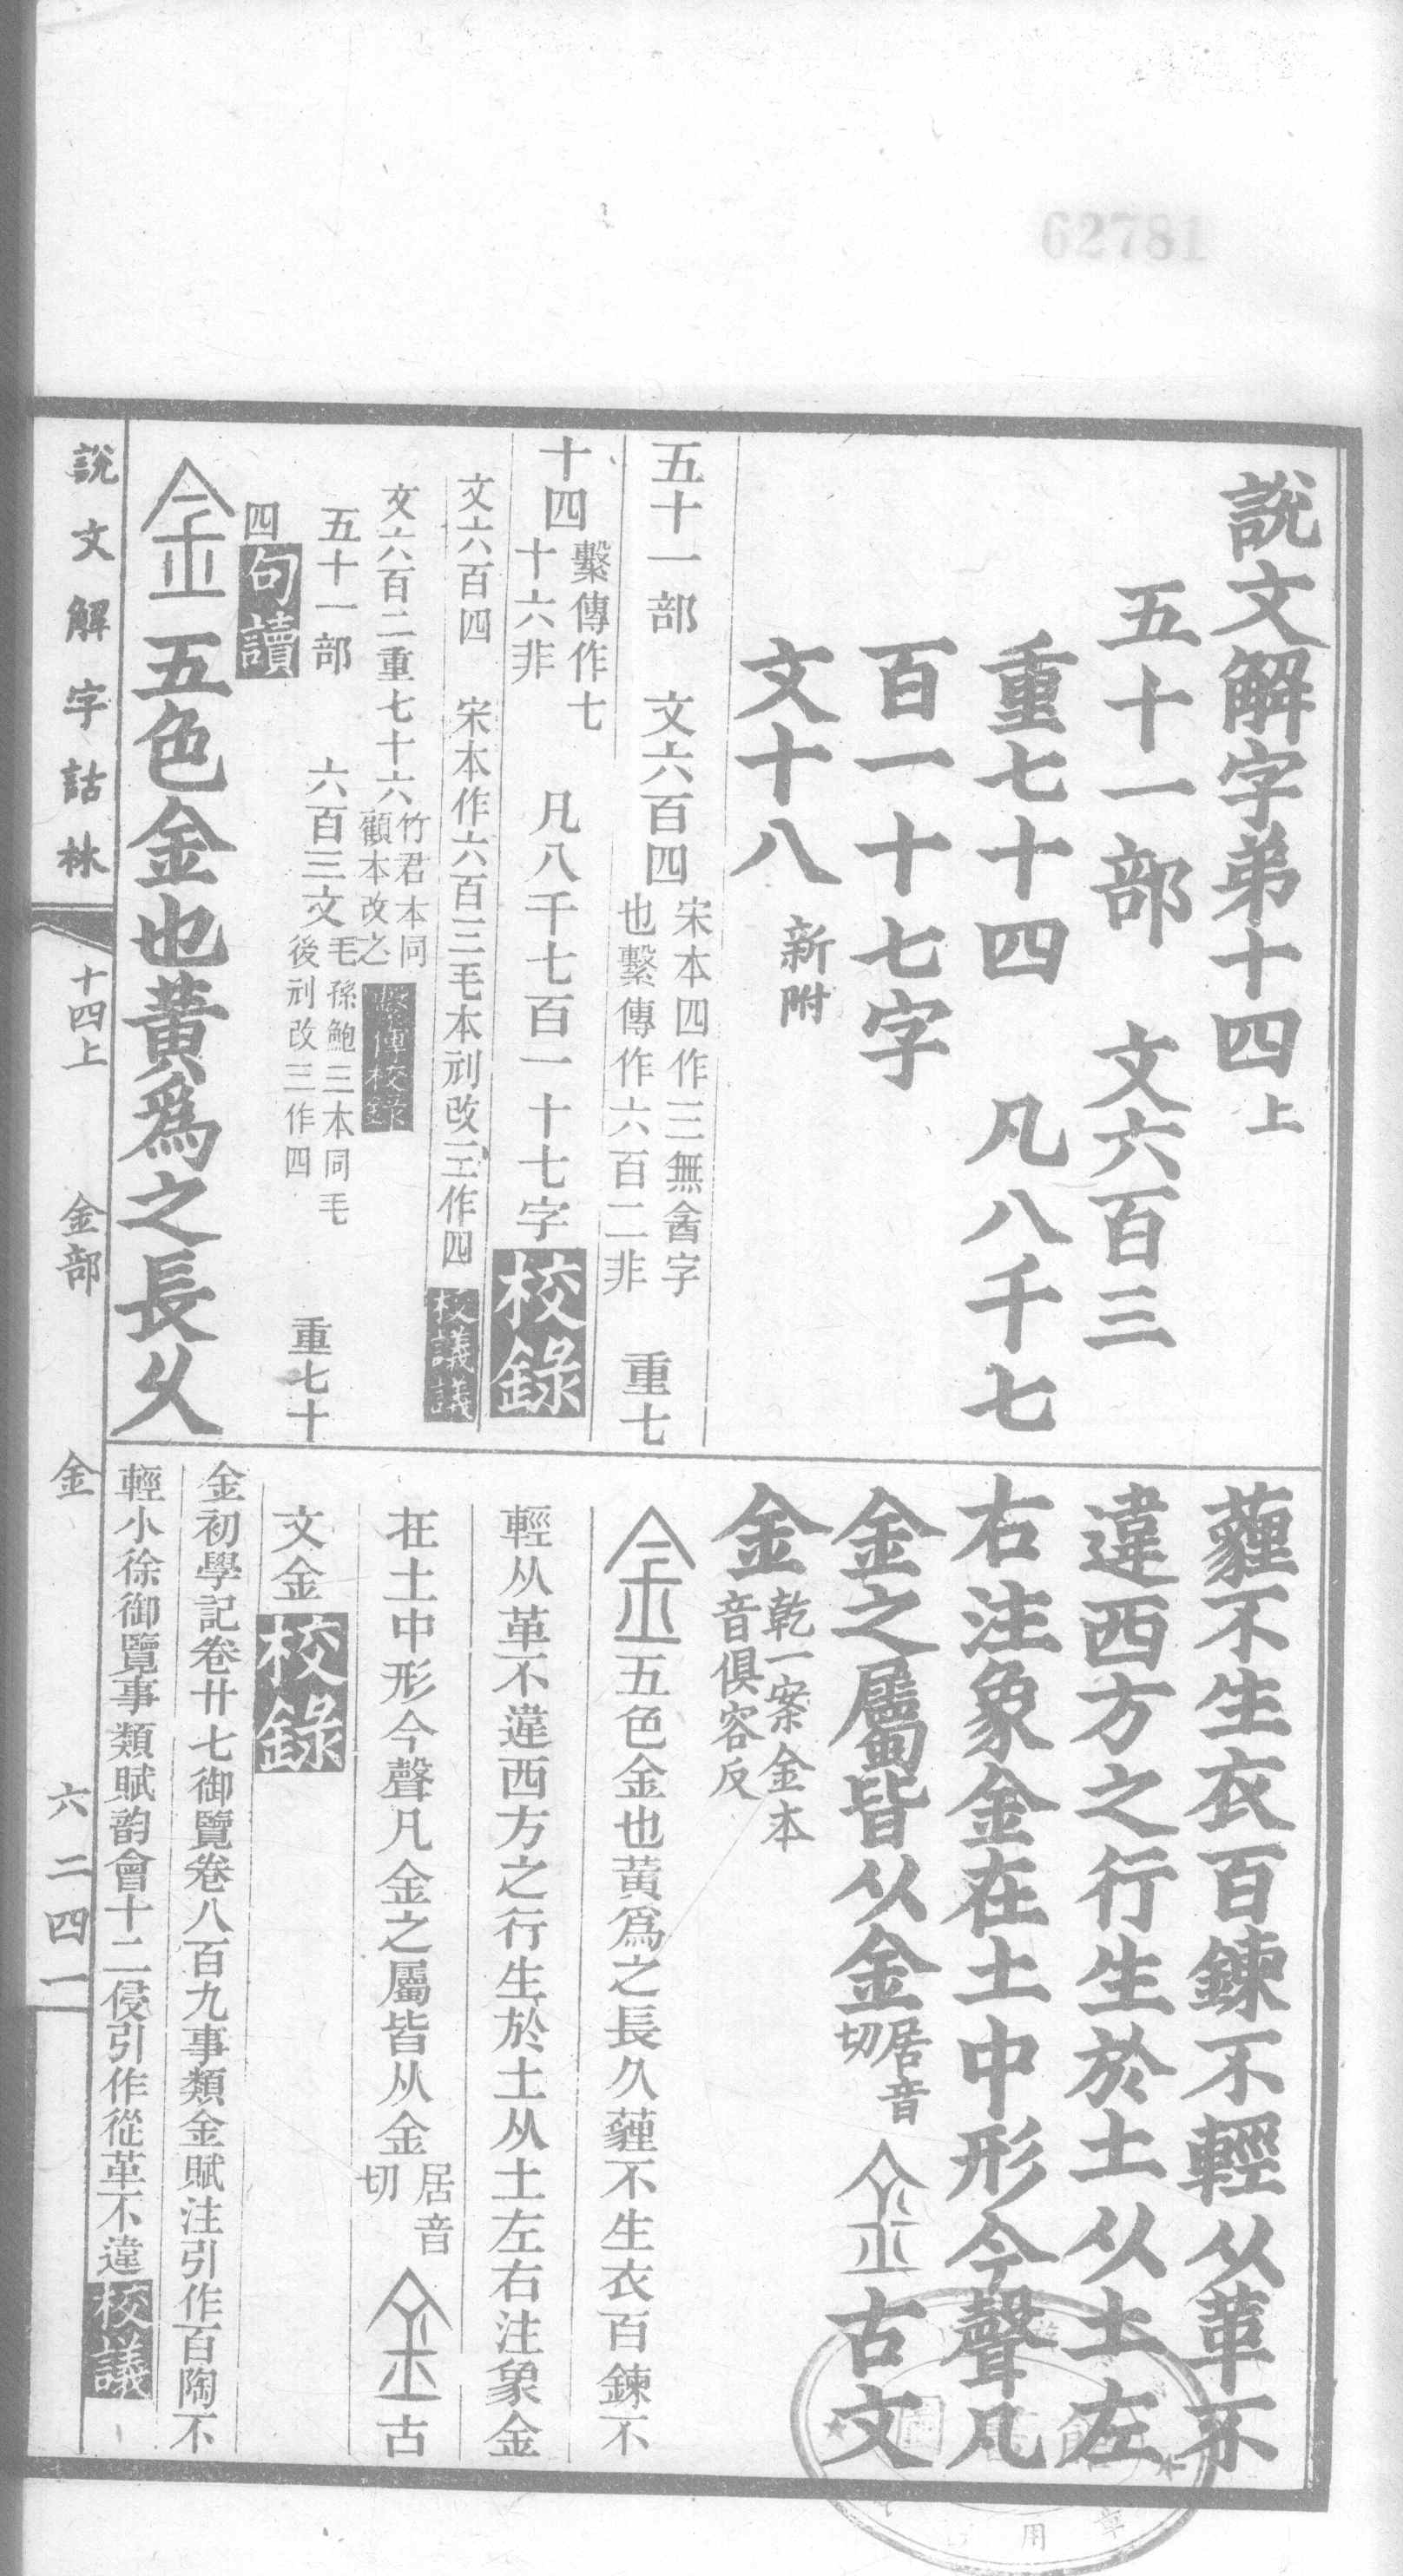 62781
說文解字弟十四上
五十一部　文六百三
重七十四　凡八千七
百一十七字
文十八新附
五十一部　文六百四宋本四作三無𨤾字也繫傳作六百二非　重七
十四繫傳作七十六非　凡八千七百一十七字校錄
文六百四　宋本作六百三毛本剜改三作四校議議
文六百二重七十六竹君本同顧本改之繫傳校錄
五十一部　六百三文毛孫鮑三本同毛後剜改三作四　重七十
四句讀
金五色金也黃爲之長久
薶不生衣百鍊不輕从革不
違西方之行生於土从土左
右注象金在土中形今聲凡
金之屬皆从金居音切　古文
金乾一案金本音俱容反
金五色金也黃爲之長久薶不生衣百鍊不
輕从革不違西方之行生於土从土左右注象金
在土中形今聲凡金之屬皆从金居音切　古
文金校錄
金初學記卷廿七御覽卷八百九事類金賦注引作百陶不
輕小徐御覽事類賦韵會十二侵引作從革不違校議
說文解字詁林　十四上　金部　金　六二四一